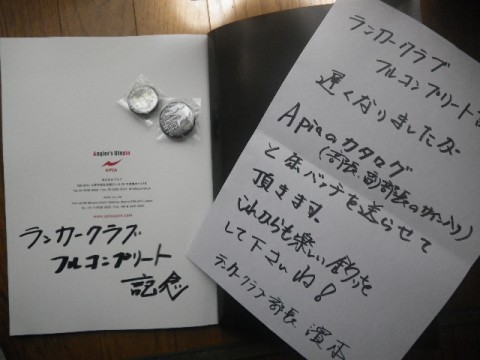 Angler's Utopia
APIA
ランカークラブ
フルコンプリート
記念
ランカークラブ
フルコンプリート
遅くなりましたが
Apiaのカタログ
と缶バッチを送らせて
頂きます。
これからも楽しい釣りを
して下さいね!
ランカークラブ部長 濱本